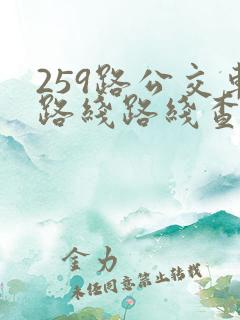 259路公交车
路线路线查
金力
未经同意禁止转载